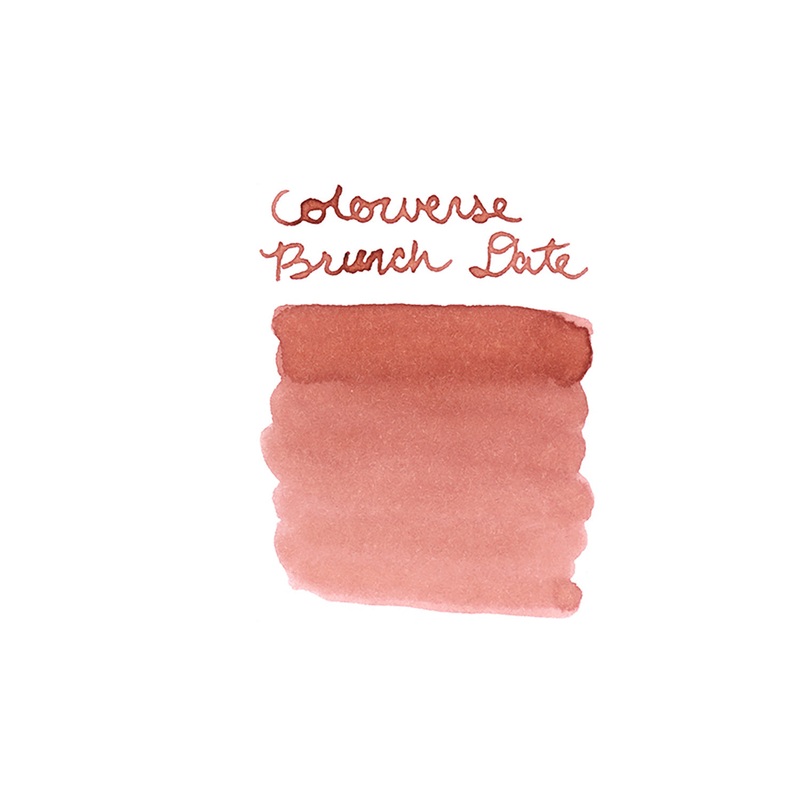 Colorverse
Brunch Date